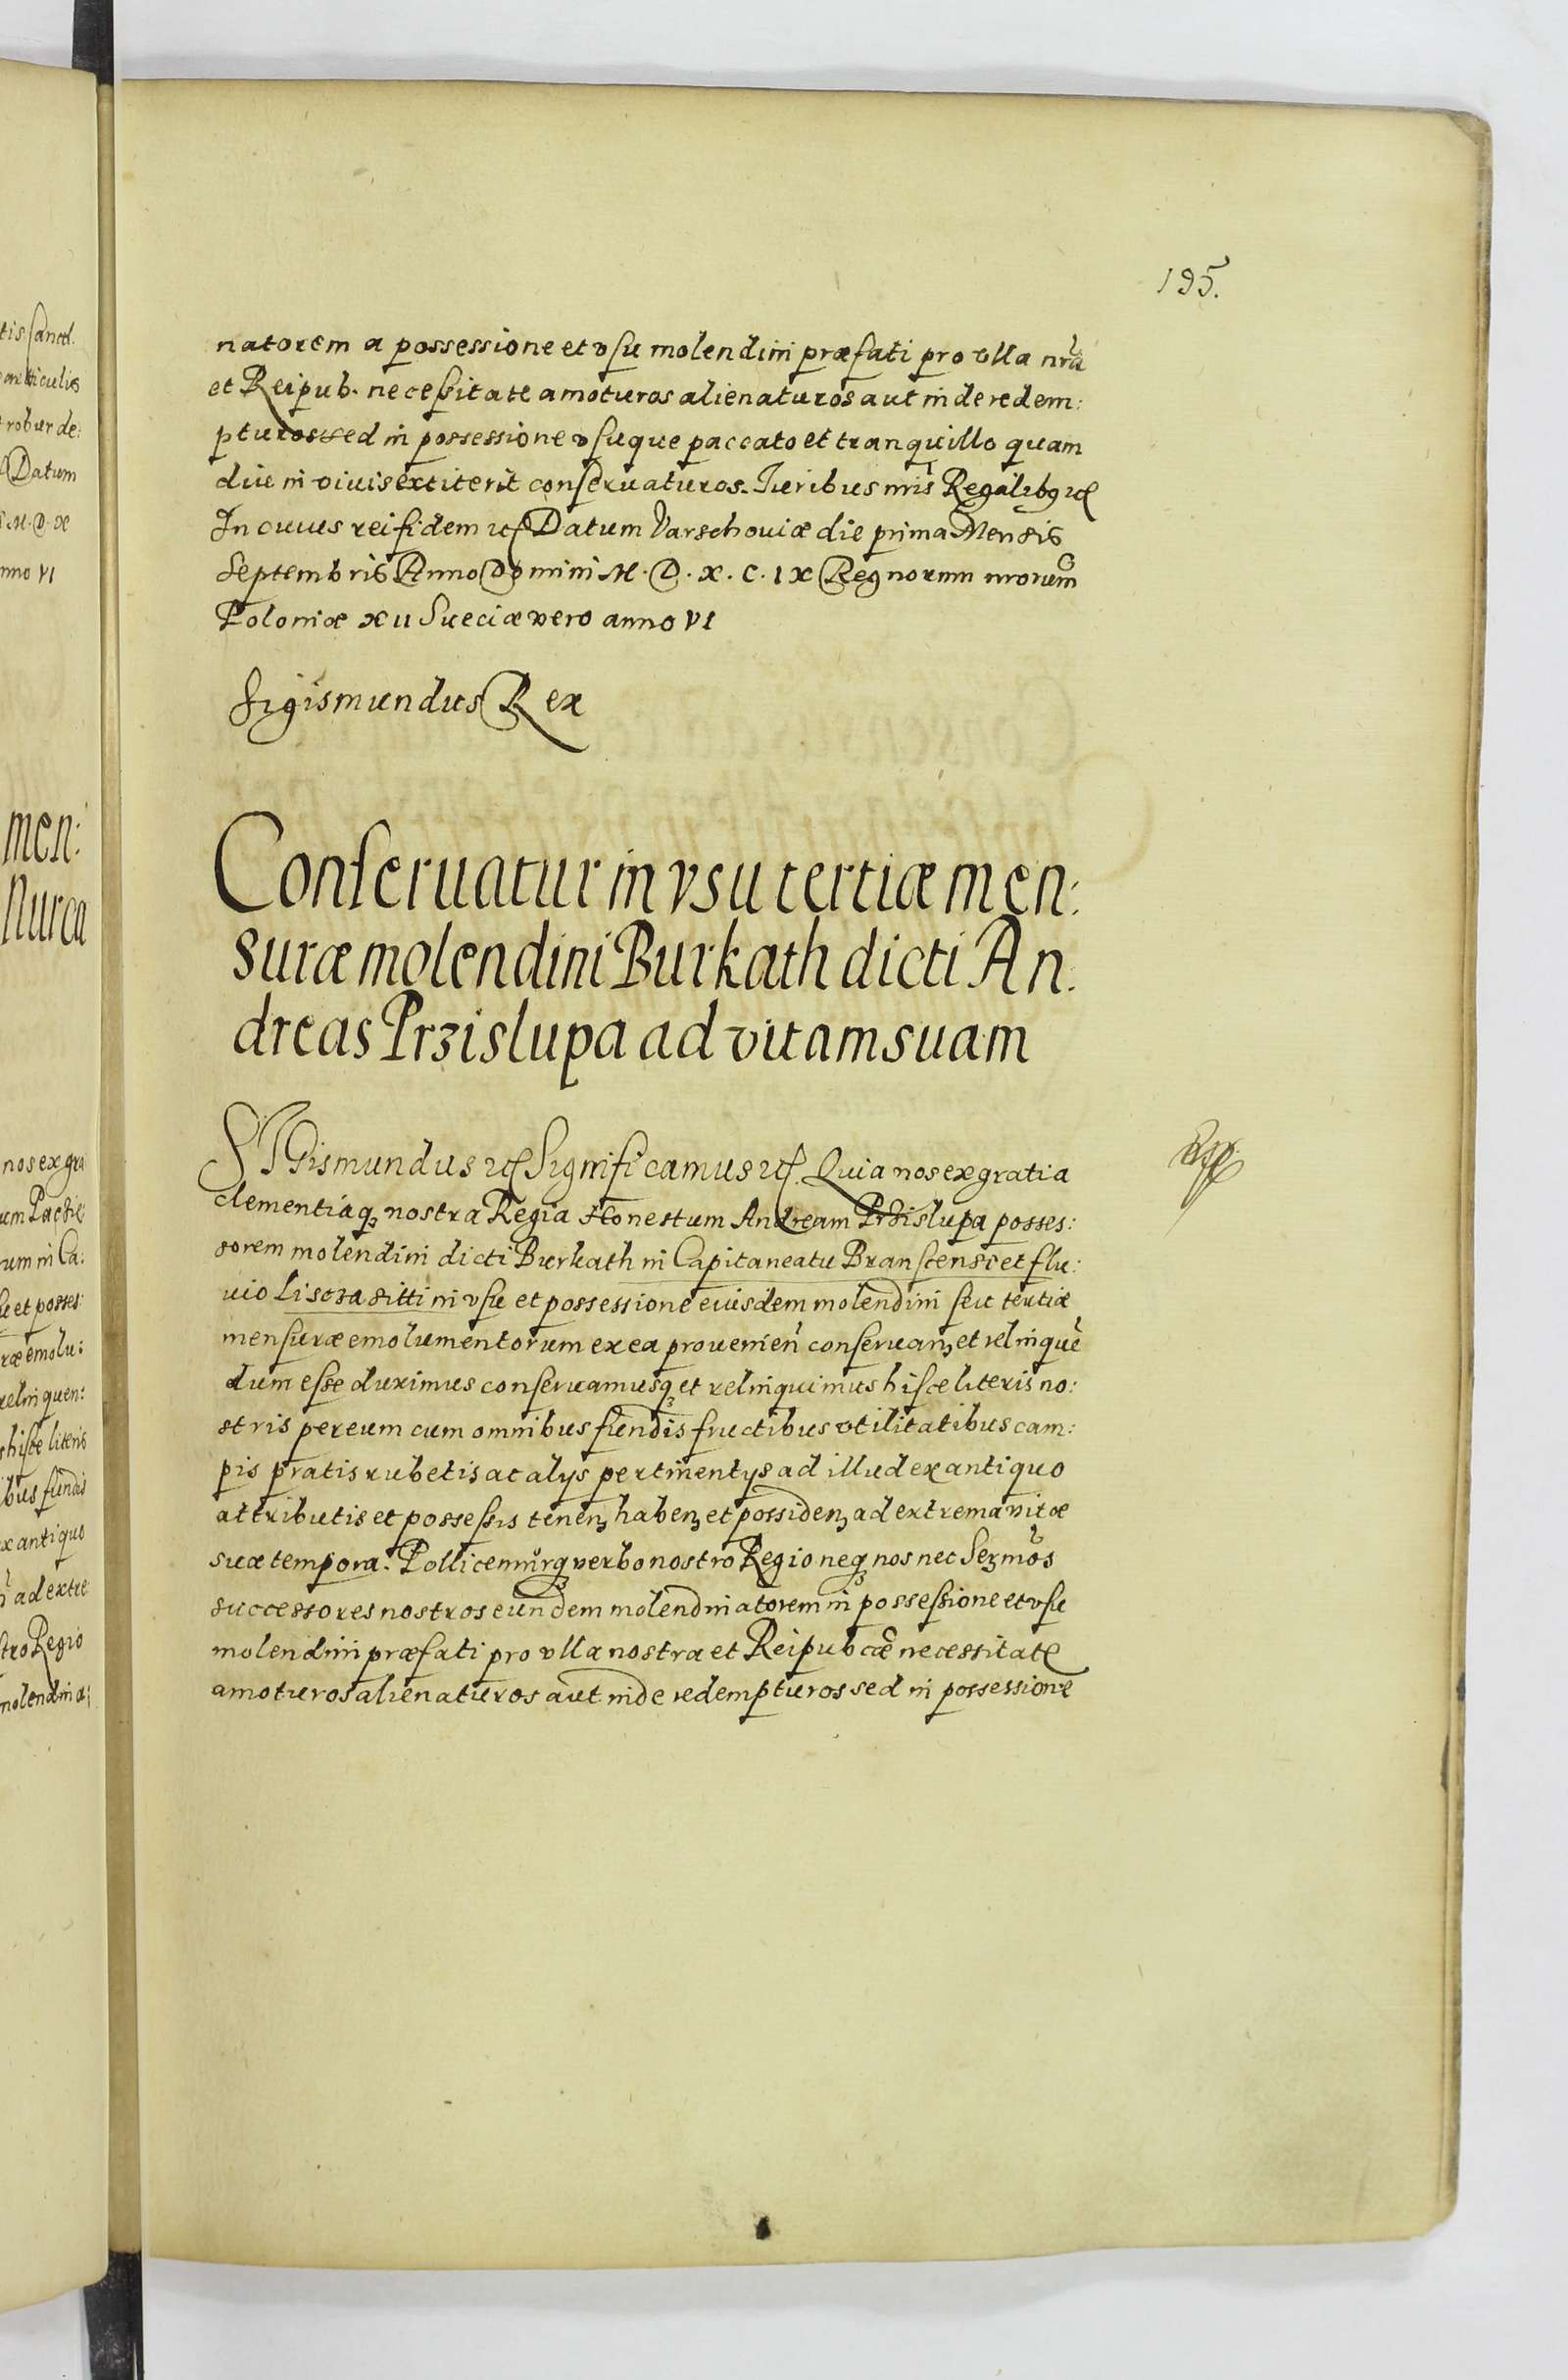 195.
natorem a possessione et vsu molendini præfati pro vlla nrã
et Reipub. necessitate amoturos alienaturos aut inde redem:
pturos sed in possessione vsuque paccato et tranquillo quam
diu in viuis extiterit conseruaturos. Iuribus nris Regalibq
In cuius rei fidem Datum Varschouiæ die prima Mensis
Septembris Anno Domini M. D. X. C. IX Regnorum nrorum
Poloniæ XII Sueciæ vero anno VI
Sigismundus Rex
Conseruatur in vsu tertiæ men:
suræ molendini Burkath dicti An:
dreas Przislupa ad vitam suam
SIGismundus Significamus Quia nos ex gratia
clementiáq nostra Regia Honestum Andream Przislupa posses:
sorem molendini dicti Burkath in Capitaneatu Branscensi et flu:
uio Lisoza sitti in vsu et possessione eiusdem molendini seu tertiæ
mensuræ emolumentorum ex ea prouenien conseruanʒ et relinquẽ
dum esse duximus conseruamusq et relinquimus hisce literis no:
stris per eum cum omnibus fundis fructibus vtilitatibus cam:
pis pratis rubetis ac alys pertinentys ad illud ex antiquo
attributis et possessis tenenʒ habenʒ et possidenʒ ad extrema vitæ
suæ tempora. Pollicemurq verbo nostro Regio neq nos nec Serʒmos
successores nostros eundem molendinatorem in possessione et vsu
molendini præfati pro vlla nostra et Reipubcæ necessitate
amoturos alienaturos aut inde redempturos sed in possessione